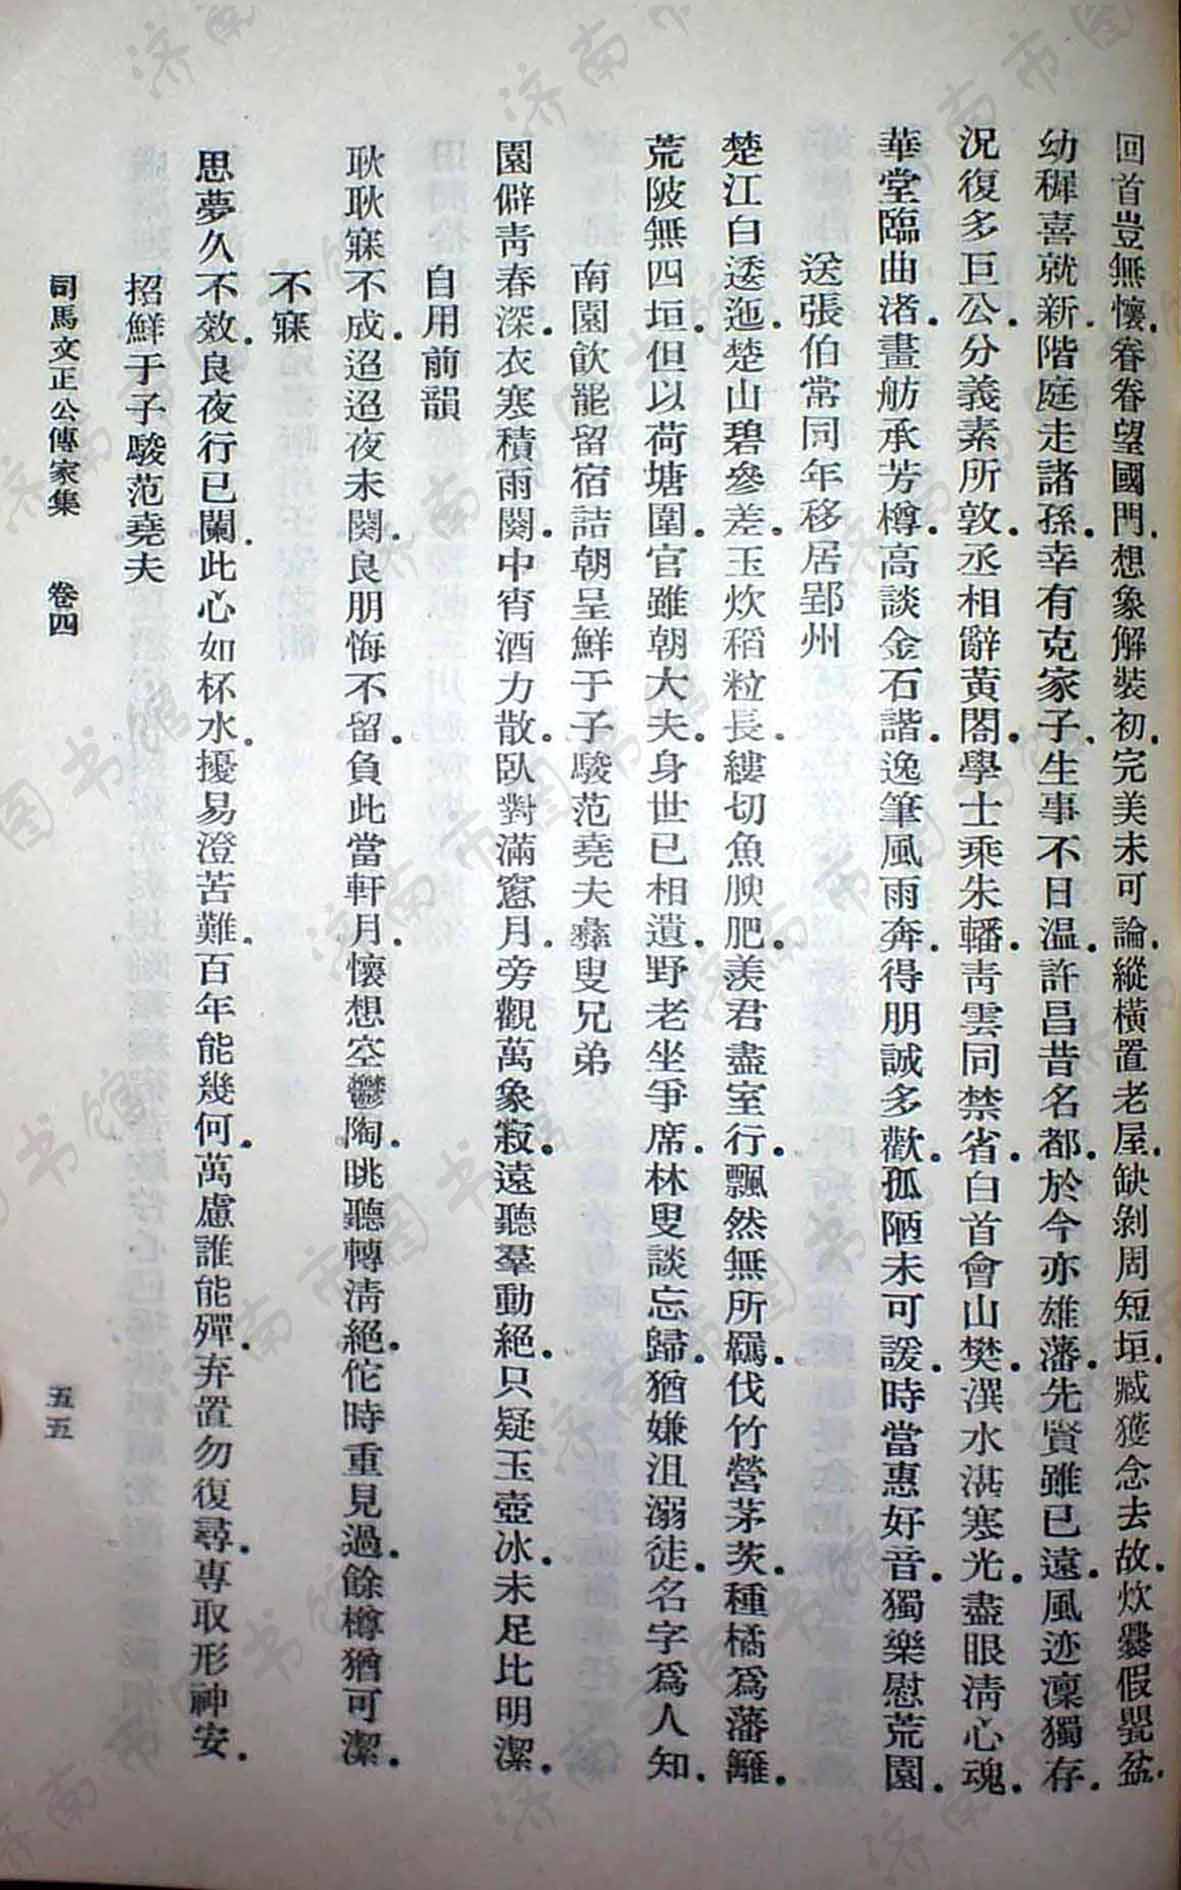 回首豈無懷。眷眷望國門。想象解裝初。完美未可論。縱橫置老屋。缺剝周短垣。臧獲念去故。炊爨假甖盆。
幼穉喜就新。階庭走諸孫。幸有克家子。生事不日溫。許昌昔名都。於今亦雄藩。先賢雖已遠。風迹凜獨存。
況復多巨公。分義素所敦。丞相辭黃閣。學士乘朱轓。靑雲同禁省。白首會山樊。潩水湛寒光。盡眼淸心魂。
華堂臨曲渚。畫舫承芳樽。高談金石諧。逸筆風雨奔。得朋誠多歡。孤陋未可諼。時當惠好音。獨樂慰荒園。
送張伯常同年移居郢州
楚江白逶迤。楚山碧參差。玉炊稻粒長。縷切魚腴肥。羨君盡室行。飄然無所羈。伐竹營茅茨。種橘爲藩籬。
荒陂無四垣。但以荷塘圍。官雖朝大夫。身世已相遺。野老坐爭席。林叟談忘歸。猶嫌沮溺徒。名字爲人知。
南園飮罷留宿詰朝呈鮮于子駿范堯夫彝叟兄弟
園僻靑春深。衣寒積雨闋。中宵酒力散。臥對滿窻月。旁觀萬象寂。遠聽羣動絕。只疑玉壺冰。未足比明潔。
自用前韻
耿耿寐不成。迢迢夜未闋。良朋悔不留。負此當軒月。懷想空鬱陶。眺聽轉淸絕。佗時重見過。餘樽猶可潔。
不寐
思夢久不效。良夜行已闌。此心如杯水。擾易澄苦難。百年能幾何。萬慮誰能殫。弃置勿復尋。專取形神安。
招鮮于子駿范堯夫
司馬文正公傳家集 卷四 五五
济南市图书馆